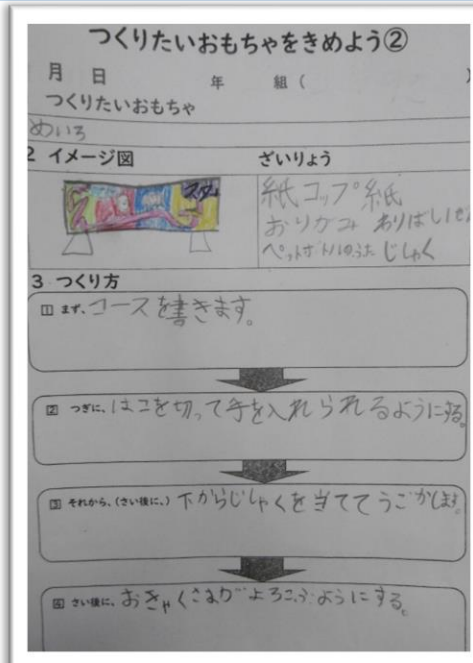 つくりたいおもちゃをきめよう②
月 日 年 組(
つくりたいおもちゃ
めいろ
2 イメージ図 ざいりょう
スタート
紙コップ 紙
おりがみ わりばし1ぜん
ペットボトルのふた じしゃく
3 つくり方
1 まず、コースを書きます。
2 つぎに、はこを切って手を入れられるようにする。
3 それから、(さい後に、)下からじしゃくを当ててうごかします。
4 さい後に、おきゃくさまがよろこぶようにする。